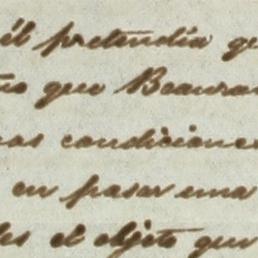 él pretendía qu
que Beaura
condicione
en pasar una
el objeto que